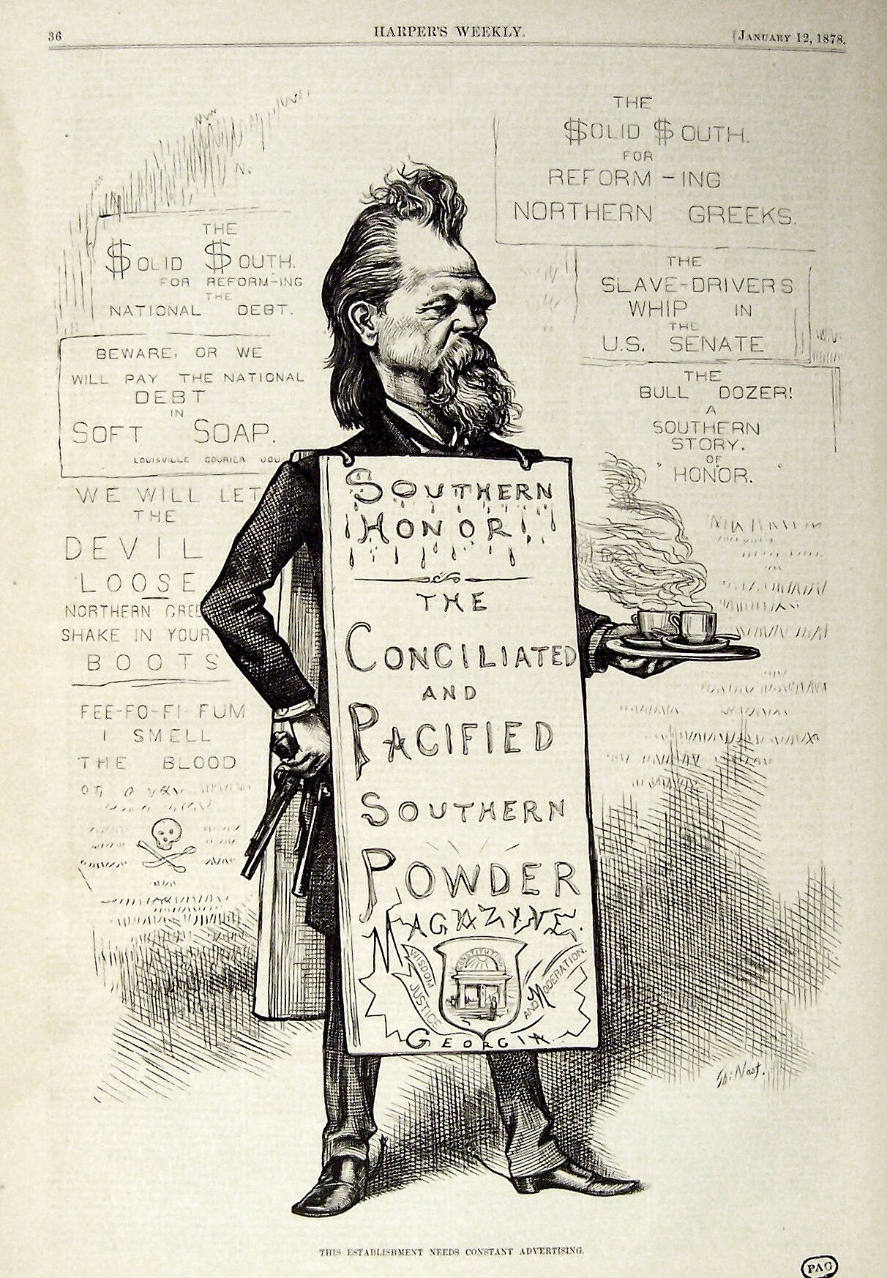 36
HARPER'S WEEKLY.
[JANUARY 12, 1878.
THE
$OLID $OUTH.
FOR REFORM-ING
THE
NATIONAL DEBT.
BEWARE, OR WE
WILL PAY THE NATIONAL
DEBT
IN
SOFT SOAP.
LOUISVILLE COURIER JOU
WE WILL LET
THE
DEVIL
LOOSE
NORTHERN GREE
SHAKE IN YOUR
BOOTS
FEE-FO-FI FUM
I SMELL
THE BLOOD
THE
$OLID $OUTH.
FOR
REFORM-ING
NORTHERN GREEKS.
THE
SLAVE-DRIVERS
WHIP IN
THE
U.S. SENATE
THE
BULL DOZER!
A
SOUTHERN
STORY.
OF
"HONOR."
SOUTHERN
HONOR!
THE
CONCILIATED
AND
PACIFIED
SOUTHERN
POWDER
MAGAZINE.
CONSTITUTION
WISDOM
JUSTICE
AND MODERATION.
GEORGIA
Th: Nast.
THIS ESTABLISHMENT NEEDS CONSTANT ADVERTISING.
PAG